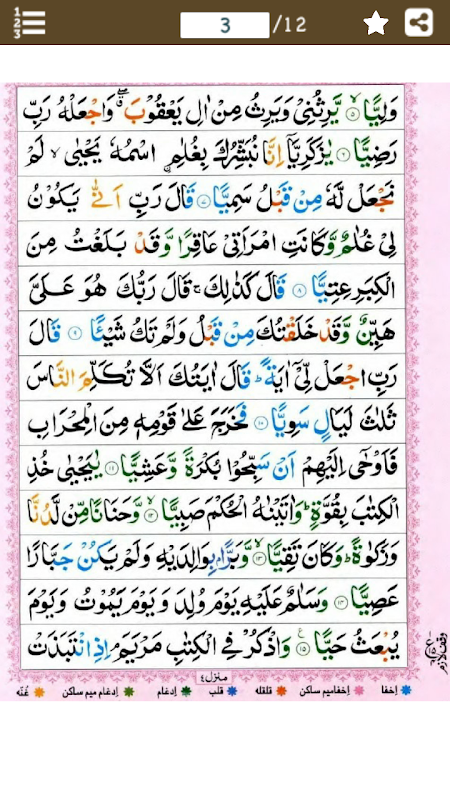 3 /12
وَلِيًّا ۙ‏﴿۵﴾ يَّرِثُنِىۡ وَيَرِثُ مِنۡ اٰلِ يَعۡقُوۡبَ ‌ۖ وَاجۡعَلۡهُ رَبِّ
رَضِيًّا‏ ﴿۶﴾ يٰزَكَرِيَّاۤ اِنَّا نُبَشِّرُكَ بِغُلٰمِ ۨاسۡمُهٗ يَحۡيٰى ۙ لَمۡ
نَجۡعَلْ لَّهٗ مِنۡ قَبۡلُ سَمِيًّا‏ ﴿۷﴾ قَالَ رَبِّ اَنّٰى يَكُوۡنُ
لِىۡ غُلٰمٌ وَّكَانَتِ امۡرَاَتِىۡ عَاقِرًا وَّقَدۡ بَلَـغۡتُ مِنَ
الۡـكِبَرِ عِتِيًّا‏ ﴿۸﴾ قَالَ كَذٰلِكَ‌ ۚ قَالَ رَبُّكَ هُوَ عَلَىَّ
هَيِّنٌ وَّقَدۡ خَلَقۡتُكَ مِنۡ قَبۡلُ وَلَمۡ تَكُ شَيۡـًٔـا‏ ﴿۹﴾ قَالَ
رَبِّ اجۡعَلْ لِّىۡۤ اٰيَةً‌ ؕ قَالَ اٰيَتُكَ اَلَّا تُكَلِّمَ النَّاسَ
ثَلٰثَ لَيَالٍ سَوِيًّا‏ ﴿۱۰﴾ فَخَرَجَ عَلٰى قَوۡمِهٖ مِنَ الۡمِحۡرَابِ
فَاَوۡحٰٓى اِلَيۡهِمۡ اَنۡ سَبِّحُوۡا بُكۡرَةً وَّعَشِيًّا‏ ﴿۱۱﴾ يٰيَحۡيٰى خُذِ
الۡكِتٰبَ بِقُوَّةٍ‌ ؕ وَاٰتَيۡنٰهُ الۡحُكۡمَ صَبِيًّا ۙ‏ ﴿۱۲﴾ وَّحَنَانًـا مِّنۡ لَّدُنَّا
وَزَكٰوةً‌ ؕ وَّكَانَ تَقِيًّا ۙ‏ ﴿۱۳﴾ وَّبَرًّۢا بِوَالِدَيۡهِ وَلَمۡ يَكُنۡ جَبَّارًا
عَصِيًّا‏ ﴿۱۴﴾ وَسَلٰمٌ عَلَيۡهِ يَوۡمَ وُلِدَ وَيَوۡمَ يَمُوۡتُ وَيَوۡمَ
يُبۡعَثُ حَيًّا‏ ﴿۱۵﴾ وَاذۡكُرۡ فِى الۡكِتٰبِ مَرۡيَمَ‌ۘ اِذِ انْتَبَذَتۡ
وقف لازم
منزل ٤
اخفا اخفا میم ساکن قلقله قلب ادغام ادغام میم ساکن غنّه